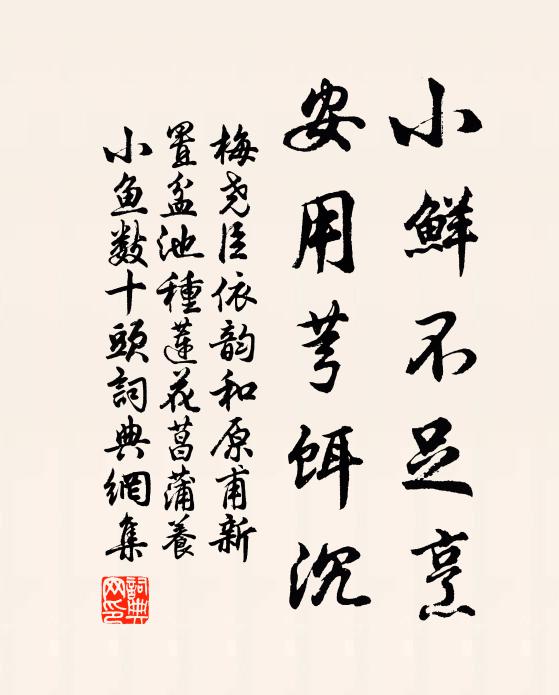 小鮮不足烹
安用芎餌沉
梅堯臣依韵和原甫新
置盆池種蓮花菖蒲養
小魚數十頭詞典網集
詞典网印